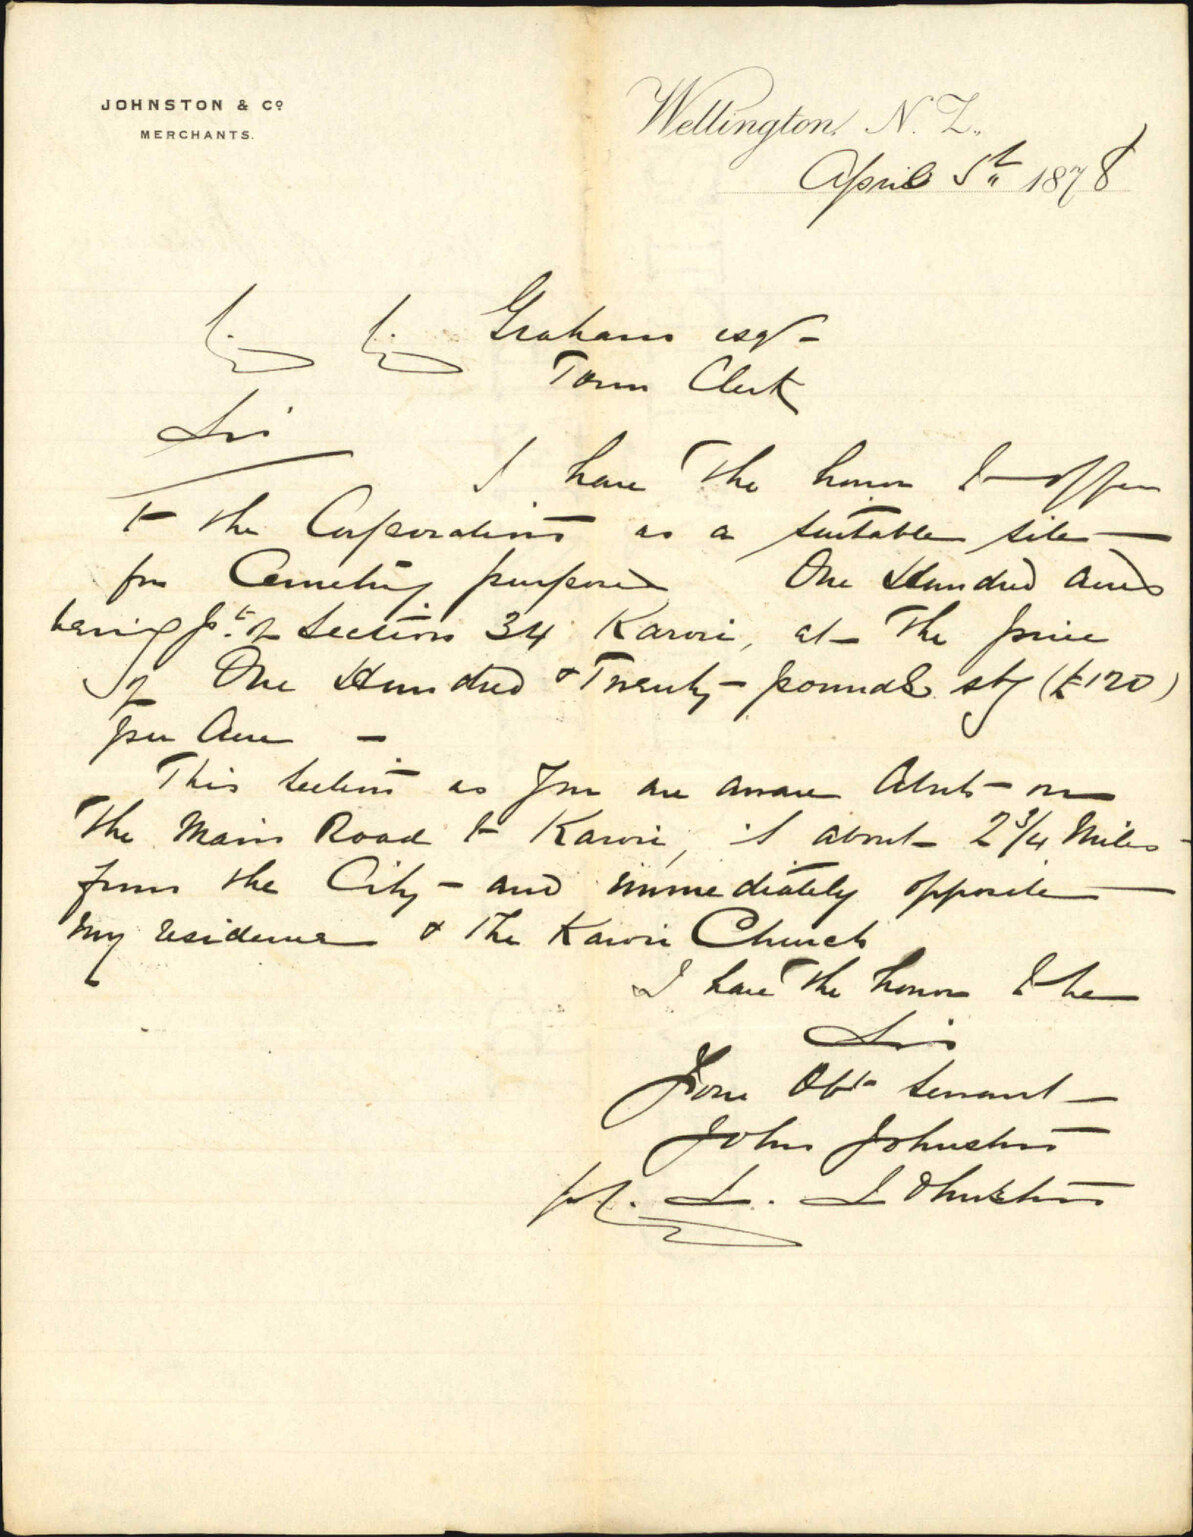 JOHNSTON & Co
MERCHANTS.
Wellington, N. Z.,
April 5th 1878
Graham esqr -
Town Clerk
Sir
I have the honor to offer
to the Corporation as a suitable site
for Cemetery purposes One Hundred acres
being pt. of Section 34 Karori, at the price
of One Hundred & Twenty pounds stg (£120)
per Acre -
This Section as you are aware Abuts on
the Main Road to Karori, is about 2 3/4 Miles
from the City - and immediately opposite
my residence & the Karori Church
I have the honor to be
Sir
Your Obt Servant
John Johnston
J. Johnston